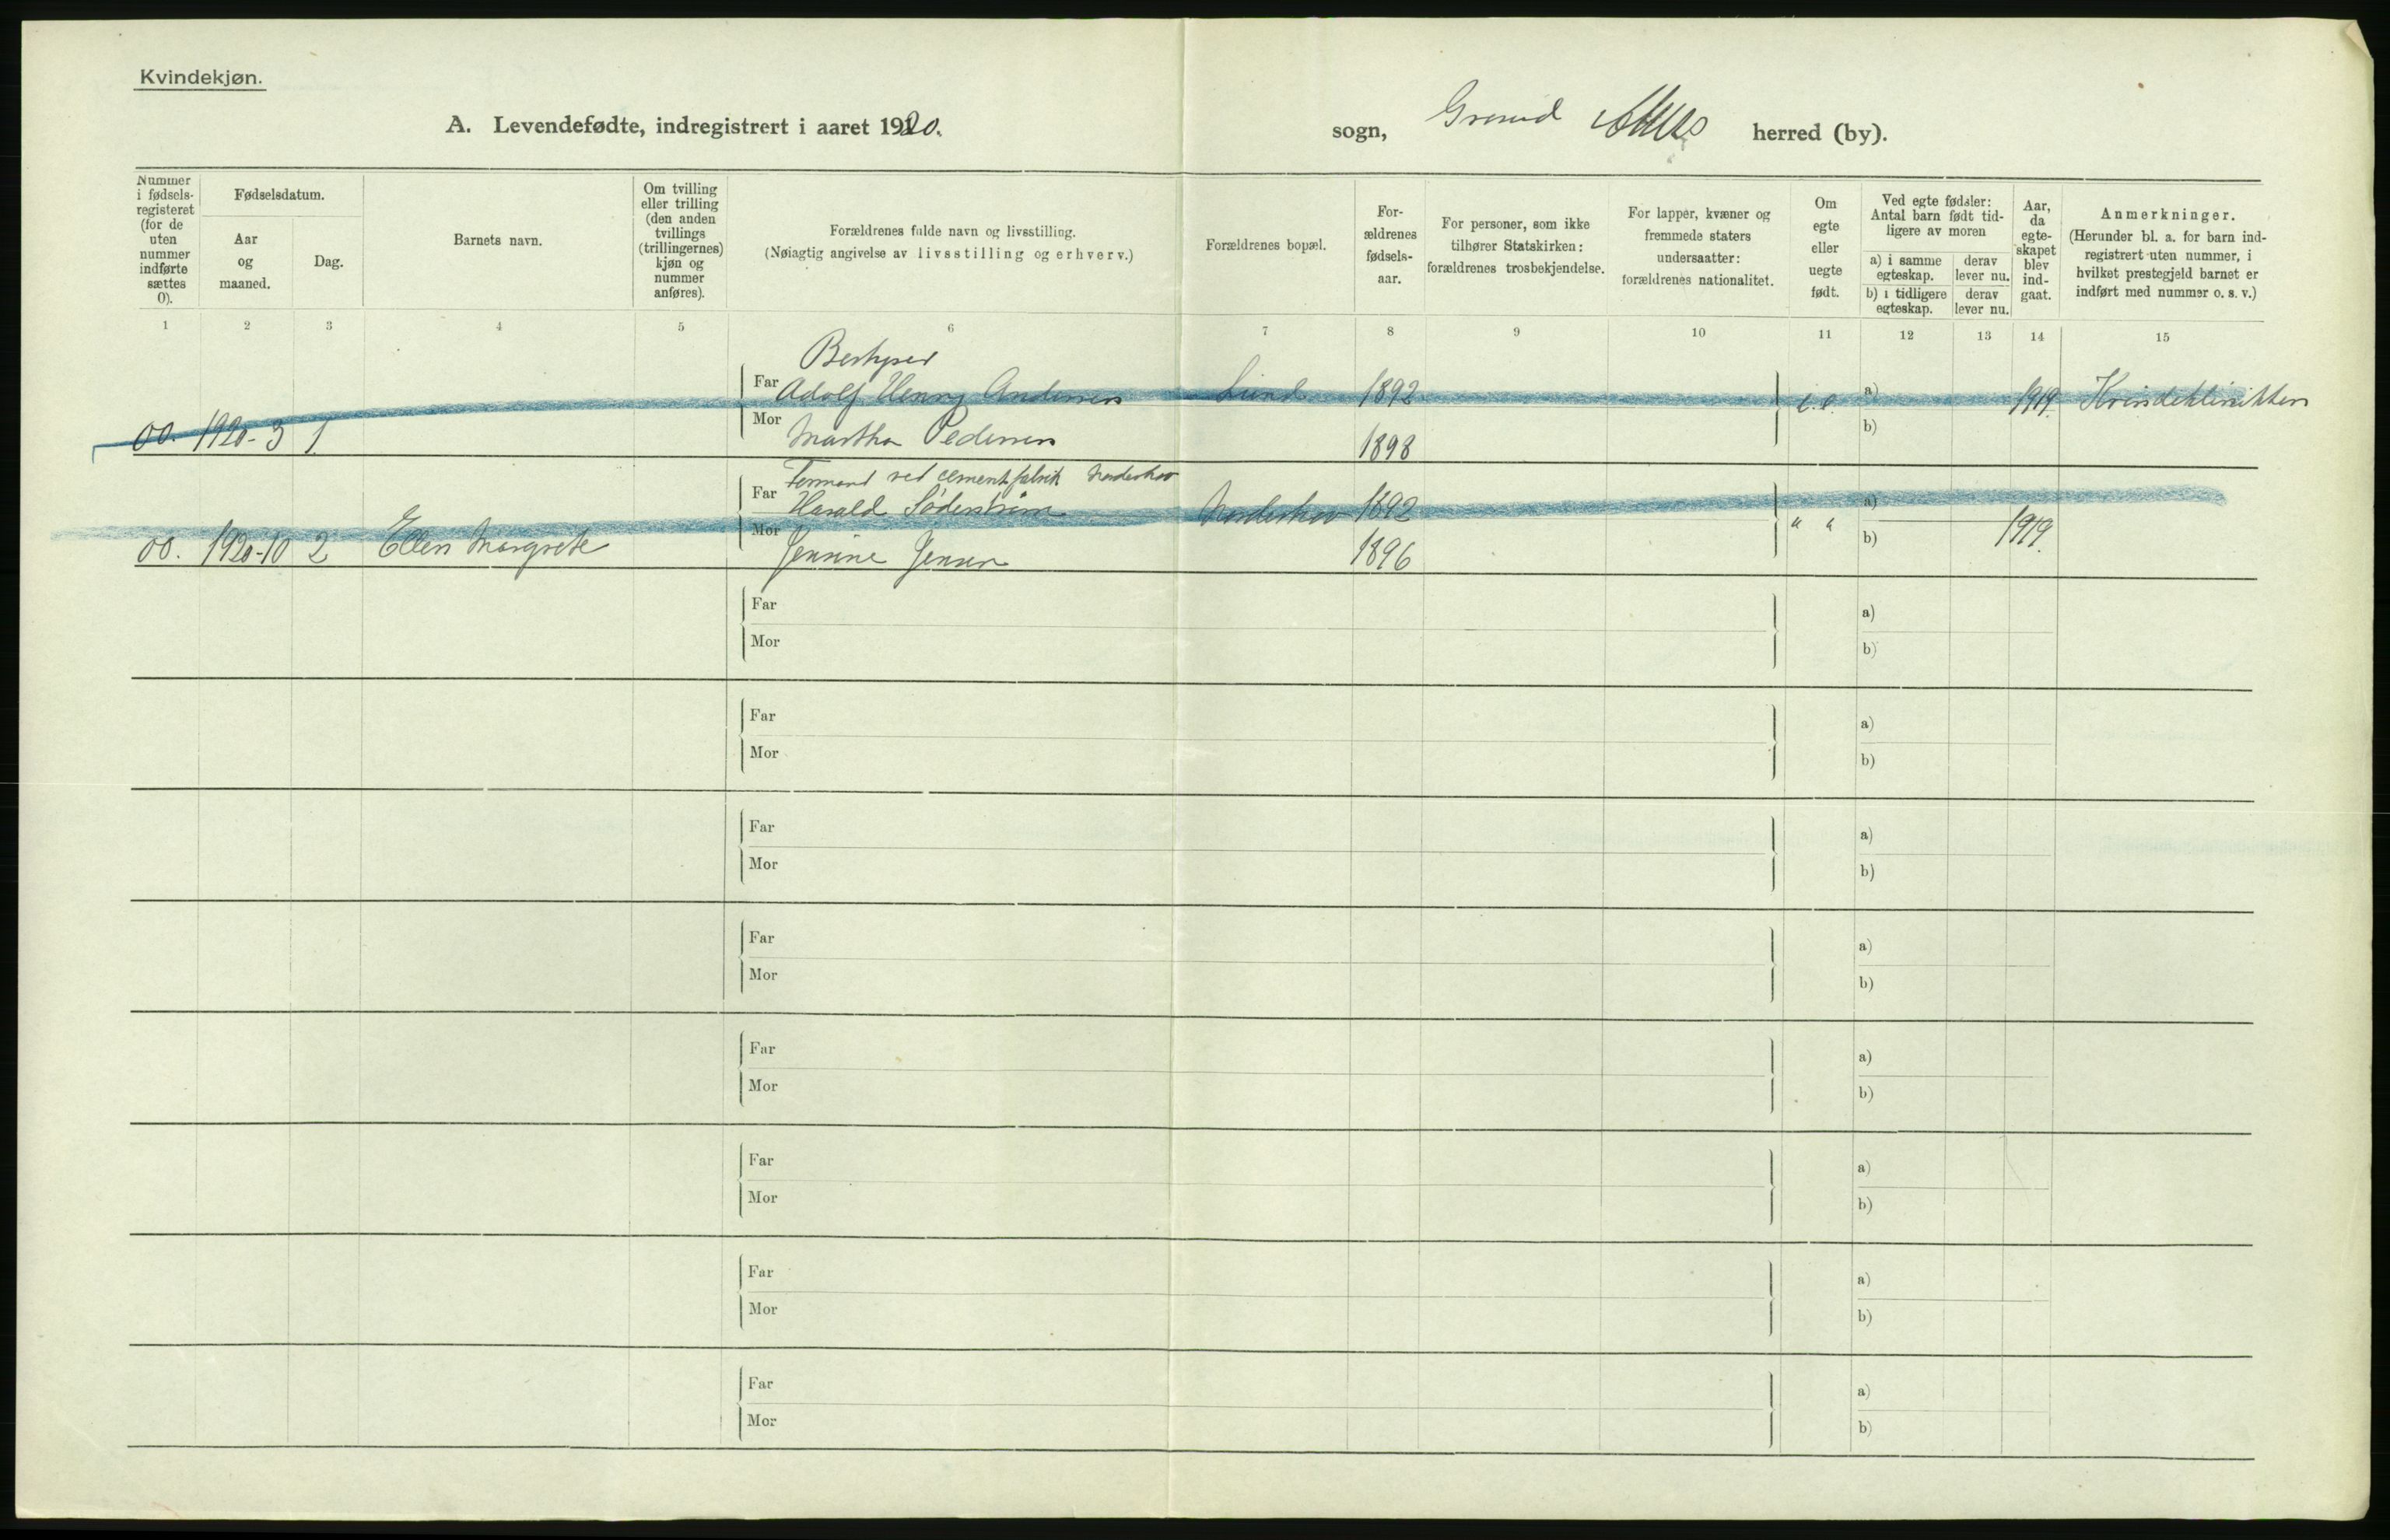 Kvindekjøn.
A. Levendefødte, indregistrert i aaret 1920.
sogn, Grorud Akers herred (by).
Nummer i fødsels-registeret (for de uten nummer indførte sættes 0).
Fødselsdatum.
Aar og maaned.
Dag.
Barnets navn.
Om tvilling eller trilling (den anden tvillings (trillingernes) kjøn og nummer anføres).
Forældrenes fulde navn og livsstilling.
(Nøiagtig angivelse av livsstilling og erhverv.)
Forældrenes bopæl.
For-ældrenes fødsels-aar.
For personer, som ikke tilhører Statskirken: forældrenes trosbekjendelse.
For lapper, kvæner og fremmede staters undersaatter: forældrenes nationalitet.
Om egte eller uegte født.
Ved egte fødsler: Antal barn født tid-ligere av moren
a) i samme egteskap.
derav lever nu.
b) i tidligere egteskap.
derav lever nu.
Aar, da egte-skapet blev ind-gaat.
Anmerkninger.
(Herunder bl. a. for barn ind-registrert uten nummer, i hvilket prestegjeld barnet er indført med nummer o. s. v.)
1 2 3 4 5 6 7 8 9 10 11 12 13 14 15
Bestyrer
Far Adolf Henry Andersen Lund 1892 e. e. a) 1919 Kvindeklinikken
00. 1920-3 1 Mor Martha Pedersen 1898 b)
Formand ved cementfabrik
Far Harald Söderström 1892 a)
00. 1920-10 2 Ellen Margrete Mor Jensine Jensen 1896 " " b) 1919.
Far a)
Mor b)
Far a)
Mor b)
Far a)
Mor b)
Far a)
Mor b)
Far a)
Mor b)
Far a)
Mor b)
Far a)
Mor b)
Far a)
Mor b)